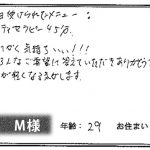 受けられたメニュー：
ティセラピー45分
かく気持ちいい!!!
ろんなご希望に答えていただきありがとう
が軽くなる気がします。
M様 年齢：29 お住まい